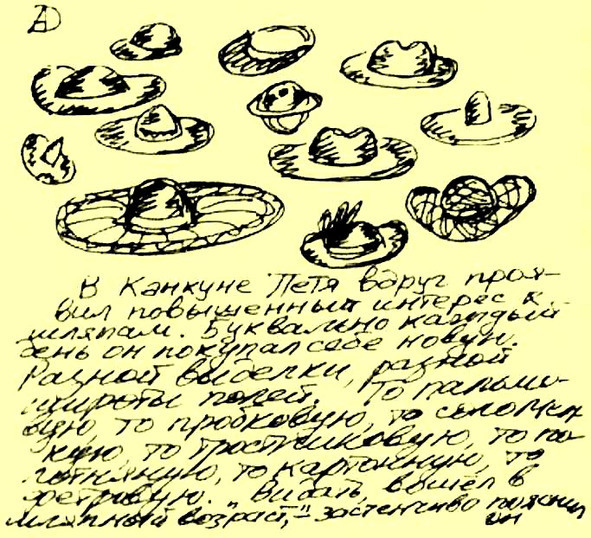 В Канкуне Петя вдруг проя-
вил повышенный интерес к
шляпам. Буквально каждый
день он покупал себе новую.
Разной выделки, разной
широты полей. То пальмо-
вую, то пробковую, то соломен
ную, то тростниковую, то по-
лотняную, то картонную, то
фетровую. „Видать, вышел в
шляпный возраст,"- застенчиво пояснил
он